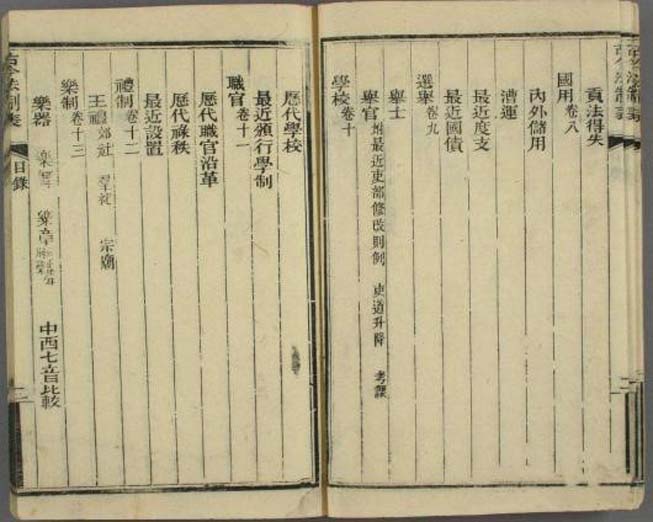 古今法制表
貢法得失
國用 卷八
內外儲用
漕運
最近度支
最近國債
選舉 卷九
舉士
舉官 附最近吏部修改則例 東道升降 考課
學校 卷十
歷代學校
最近頒行學制
職官 卷十一
歷代職官沿革
歷代祿秩
最近設置
禮制 卷十二
王禮 郊社 羣祀 宗廟
樂制 卷十三
樂器 樂章 中西七音比較
古今法制表 目錄 二